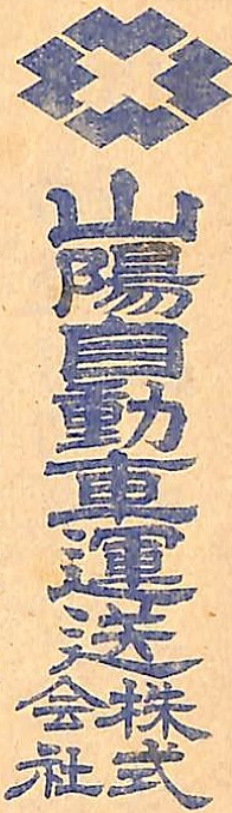 山陽自動車運送株式会社